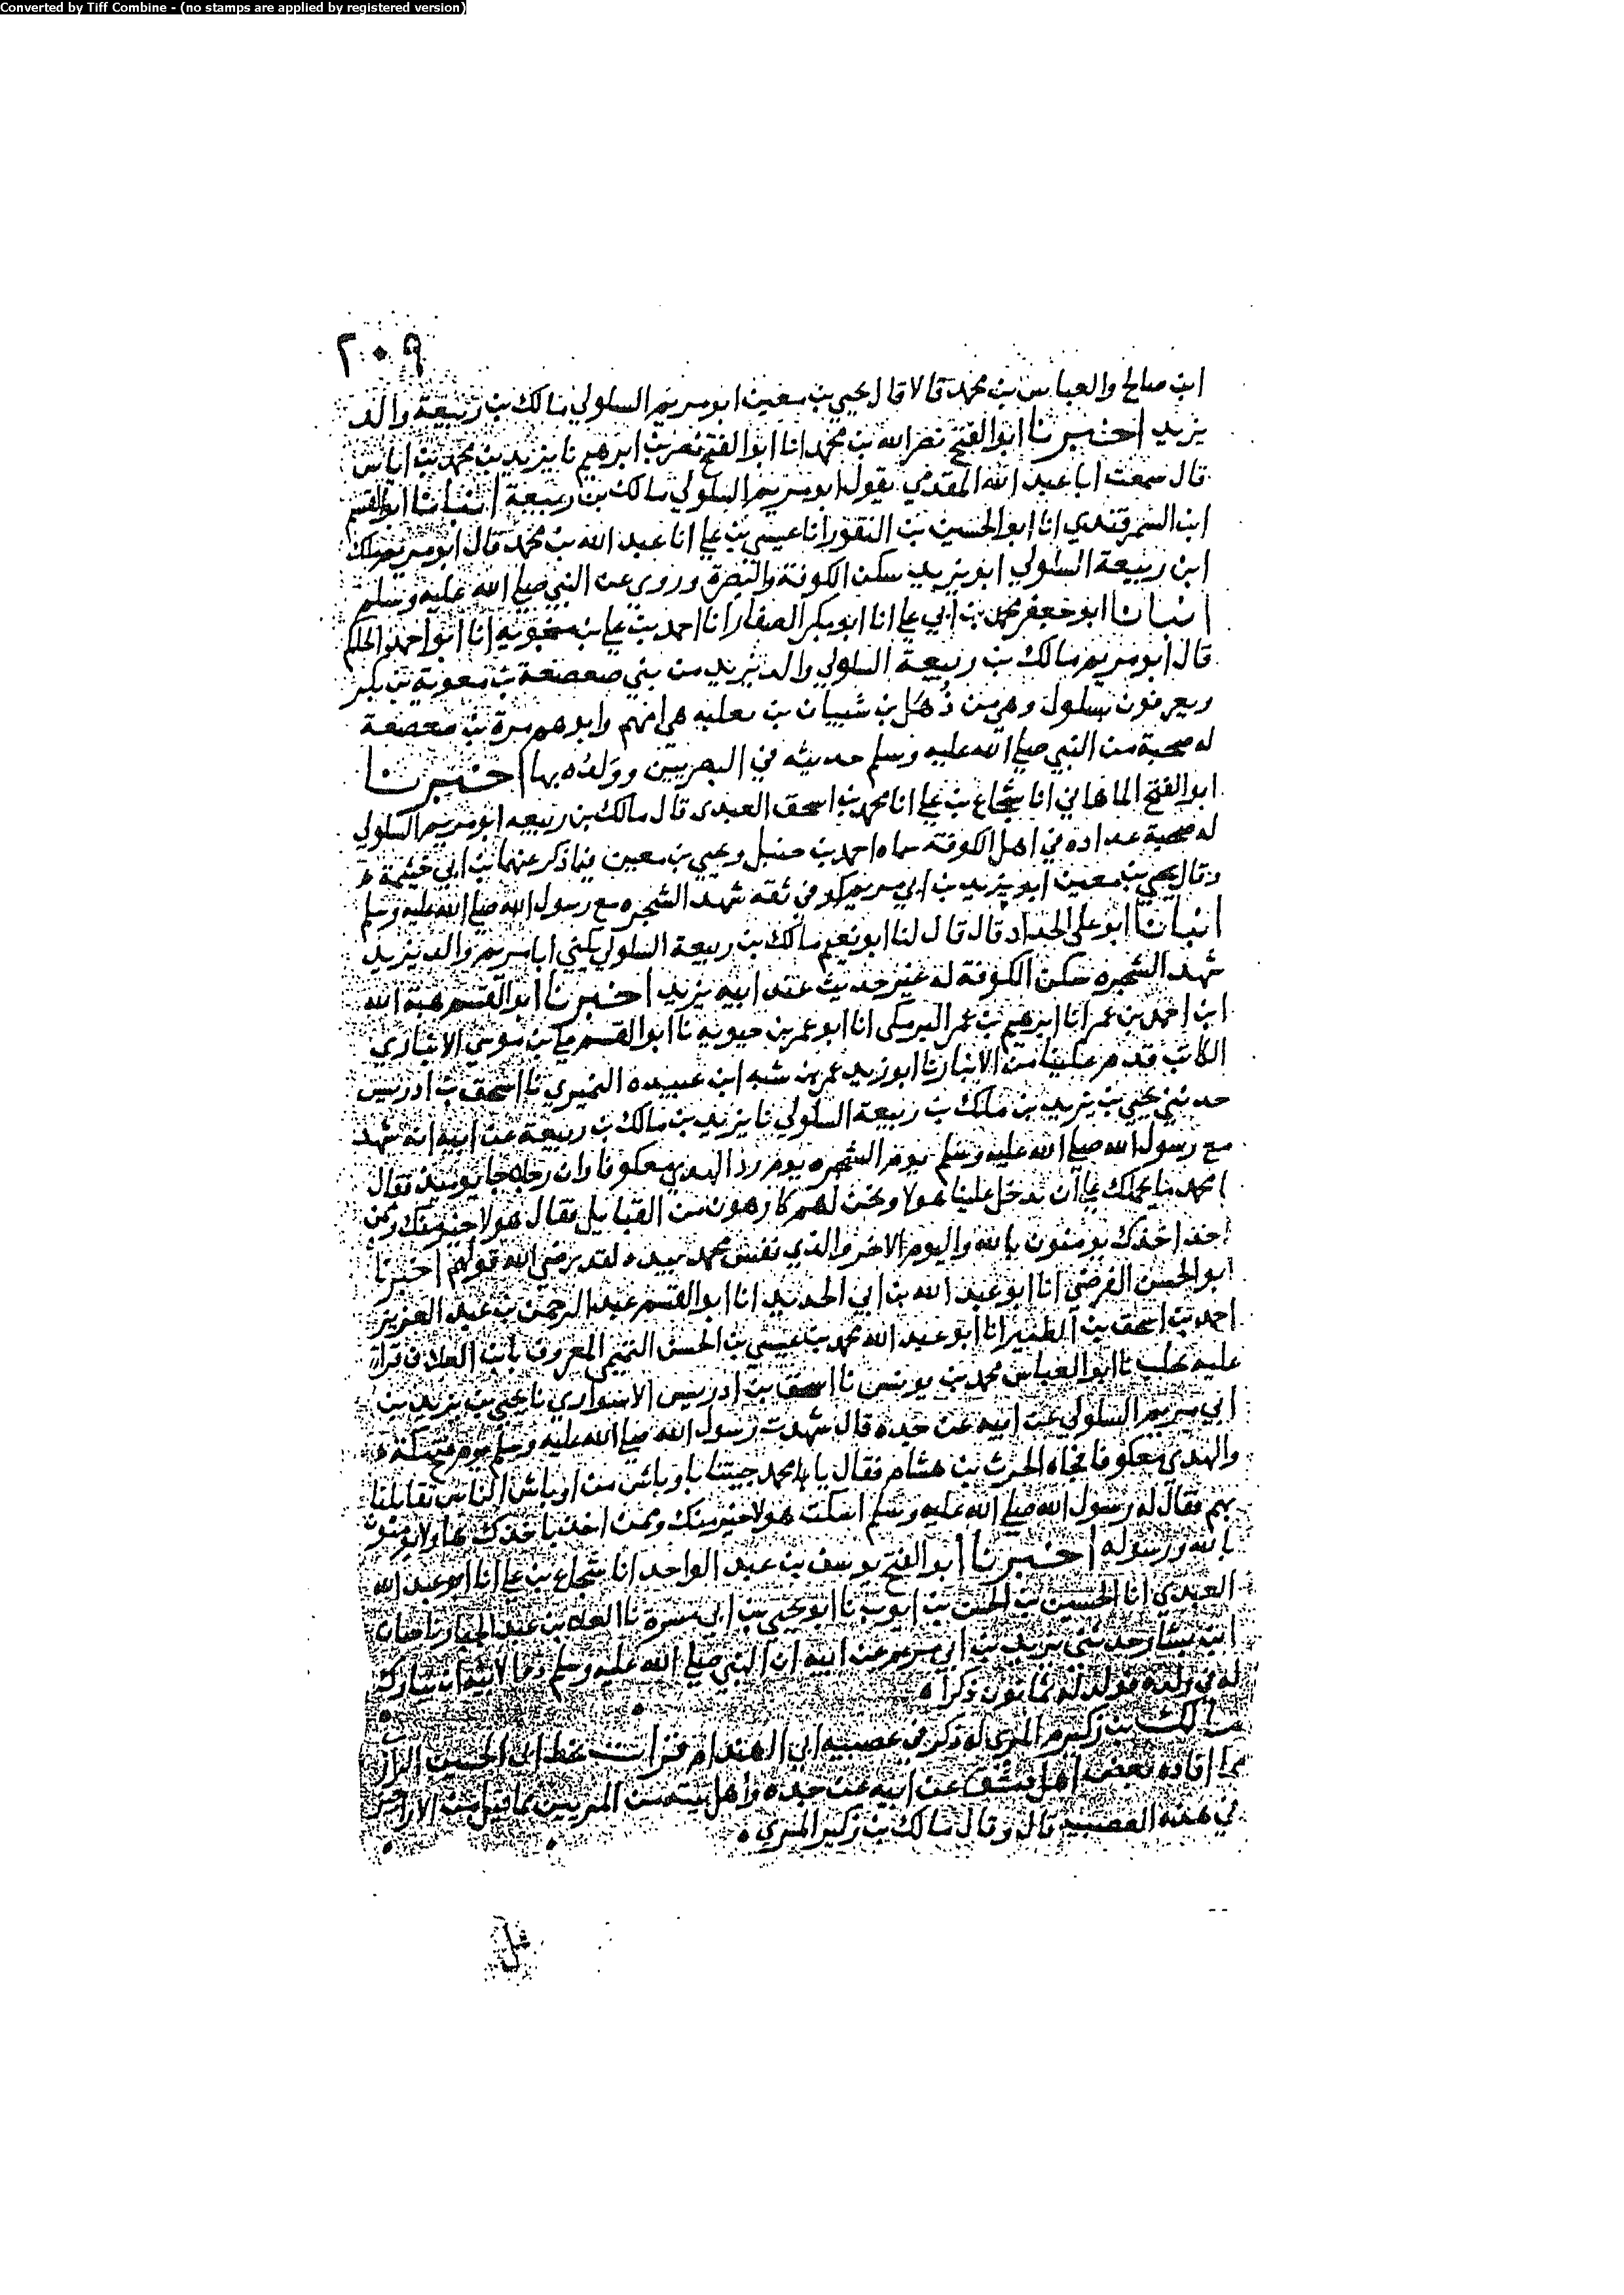 Converted by Tiff Combine - (no stamps are applied by registered version)
٢٠٩
ابن صالح والعباس بن محمد قالا قال يحيى بن معين ابو مريم السلولي مالك بن ربيعة والد
يزيد اخبرنا ابو الفتح نصر الله بن محمد انا ابو الفتح نصر بن ابرهيم نا يزيد بن محمد بن اياس
قال سمعت ابا عبد الله المقدمي يقول ابو مريم السلولي مالك بن ربيعة انبانا ابو القسم
ابن السمرقندي انا ابو الحسين بن النقور انا عيسى بن علي انا عبد الله بن محمد قال ابو مريم ملك
ابن ربيعة السلولي ابو يزيد سكن الكوفة والبصرة وروي عن النبي صلي الله عليه وسلم
انبانا ابو جعفر محمد بن ابي علي انا ابو بكر الصفار انا احمد بن علي بن منجويه انا ابو احمد الحاكم
قال ابو مريم مالك بن ربيعة السلولي والد يزيد من بني صعصعة بن معوية بن بكر
ويعرفون بسلول وهي من ذهل بن شيبان بن ثعلبه هي امهم وابوهم مرة بن صعصعة
له صحبة من النبي صلي الله عليه وسلم حديثه في البصريين وولده بها اخبرنا
ابو الفتح الماهاني انا شجاع بن علي انا محمد بن اسحق العبدي قال مالك بن ربيعه ابو مريم السلولي
له صحبة عداده في اهل الكوفة سماه احمد بن حنبل ويحيي بن معين فيما ذكر عنهما بن ابي خيثمة
وقال يحيي بن معين ابو يزيد بن ابي مريم كوفي ثقه شهد الشجره مع رسول الله صلي الله عليه وسلم
انبانا ابو علي الحداد قال قال لنا ابو نعيم مالك بن ربيعة السلولي يكني ابا مريم والد يزيد
شهد الشجره سكن الكوفة له غير حديث عند ابيه يزيد اخبرنا ابو القسم هبة الله
ابن احمد بن عمر انا ابرهيم بن عمر البرمكي انا ابو عمر بن حيويه نا ابو القسم علي بن موسي الانباري
الكاتب قدم علينا من الانبار نا ابو زيد عمر بن شبه ابن عبيده النميري نا اسحق بن ادريس
حدثني يحيي بن يزيد بن ملك بن ربيعة السلولي نا يزيد بن مالك بن ربيعة عن ابيه انه شهد
مع رسول الله صلي الله عليه وسلم يوم الشجره يوم رد الهدي معكوفا وان رجلا جا يوميذ فقال
يا محمد ما يحملك علي ان تدخل علينا هولا ونحن لهم كارهون من القبايل فقال هولا خير منك ومن
اخذ اخذك يومنون بالله واليوم الاخر والذي نفس محمد بيده لقد رضي الله قولهم اخبرنا
ابو الحسن الفرضي انا ابو عبد الله بن ابي الحديد انا ابو القسم عبد الرحمن بن عبد العزيز
احمد بن اسحق بن الطبير انا ابو عبد الله محمد بن عيسي بن الحسن التميمي المعروف بابن العلاف قراة
عليه بحلب نا ابو العباس محمد بن يونس نا اسحق بن ادريس الاسواري نا يحيي بن يزيد بن
ابي مريم السلولي عن ابيه عن جده قال شهدت رسول الله صلي الله عليه وسلم يوم فتح مكة
والهدي معكوفا فجاه الحرث بن هشام فقال يا محمد جيتنا باوباش من اوباش الناس تقاتلنا
بهم فقال له رسول الله صلي الله عليه وسلم اسكت هولا خير منك وممن اخذ باخذك هاولا يومنون
بالله ورسوله اخبرنا ابو الفتح يوسف بن عبد الواحد انا شجاع بن علي انا ابو عبد الله
العبدي انا الحسين بن الحسن بن ايوب نا ابو يحيي بن ابي مسرة نا العلا بن عبد الجبار نا حبان
ابن يسار حدثني يزيد بن ابي مريم عن ابيه ان النبي صلي الله عليه وسلم دعا لابيه ان يبارك
له في ولده فولد له ثمانون ذكرا
مالك بن المري له ذكر في عصبيه ابي الهندام قرات بخط ابي الحسين الرازي
مما افاده بعض اهل دمشق عن ابيه عن جده واهل بيته من المريين مما قيل من الاراجيز
في هذه العصبيه قال وقال مالك بن المري